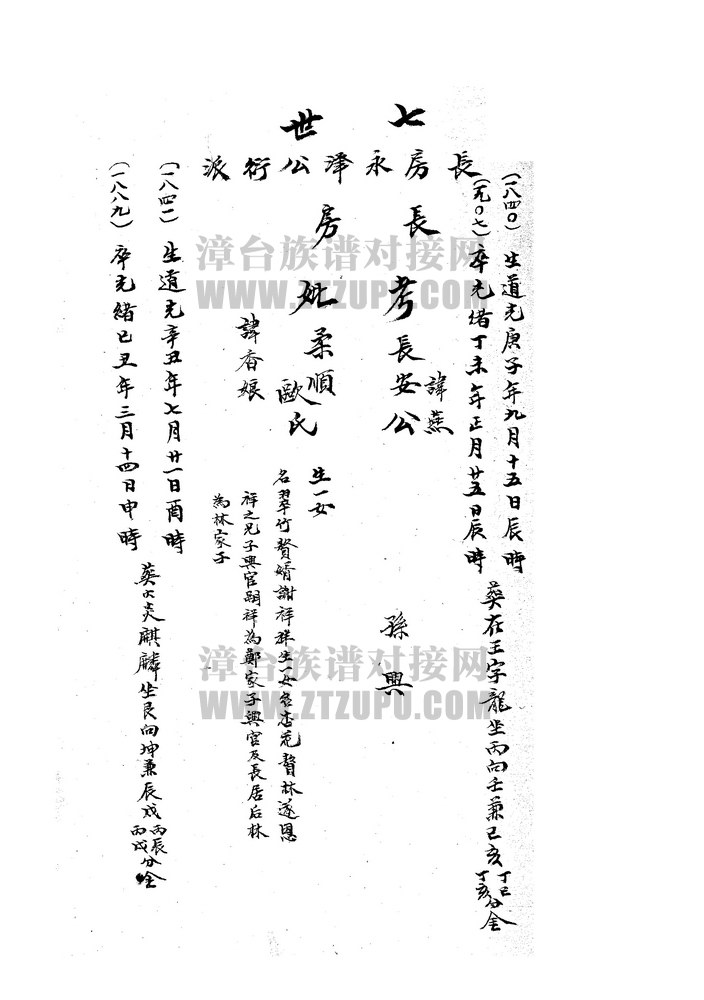 七世
長房永澤公衍派
(一八四〇) 生道光庚子年九月十五日辰時
(一九〇七) 卒光緒丁未年正月廿五日辰時
葬在王字龍坐丙向壬兼巳亥丁巳丁亥分金
長房
考長安公
諱燕
孫興
妣柔順歐氏
諱香娘
生一女
名翠竹贅婿謝祥祥生一女名杏花贅林遂恩
祥之兄子興官嗣祥為鄭家子興官及長居后林
為林家子
(一八四一) 生道光辛丑年七月廿一日酉時
(一八八九) 卒光緒己丑年三月十四日申時
葬 麒麟坐艮向坤兼辰戌丙辰丙戌分金
漳台族谱对接网
WWW.ZTZUPU.COM
漳台族谱对接网
WWW.ZTZUPU.COM